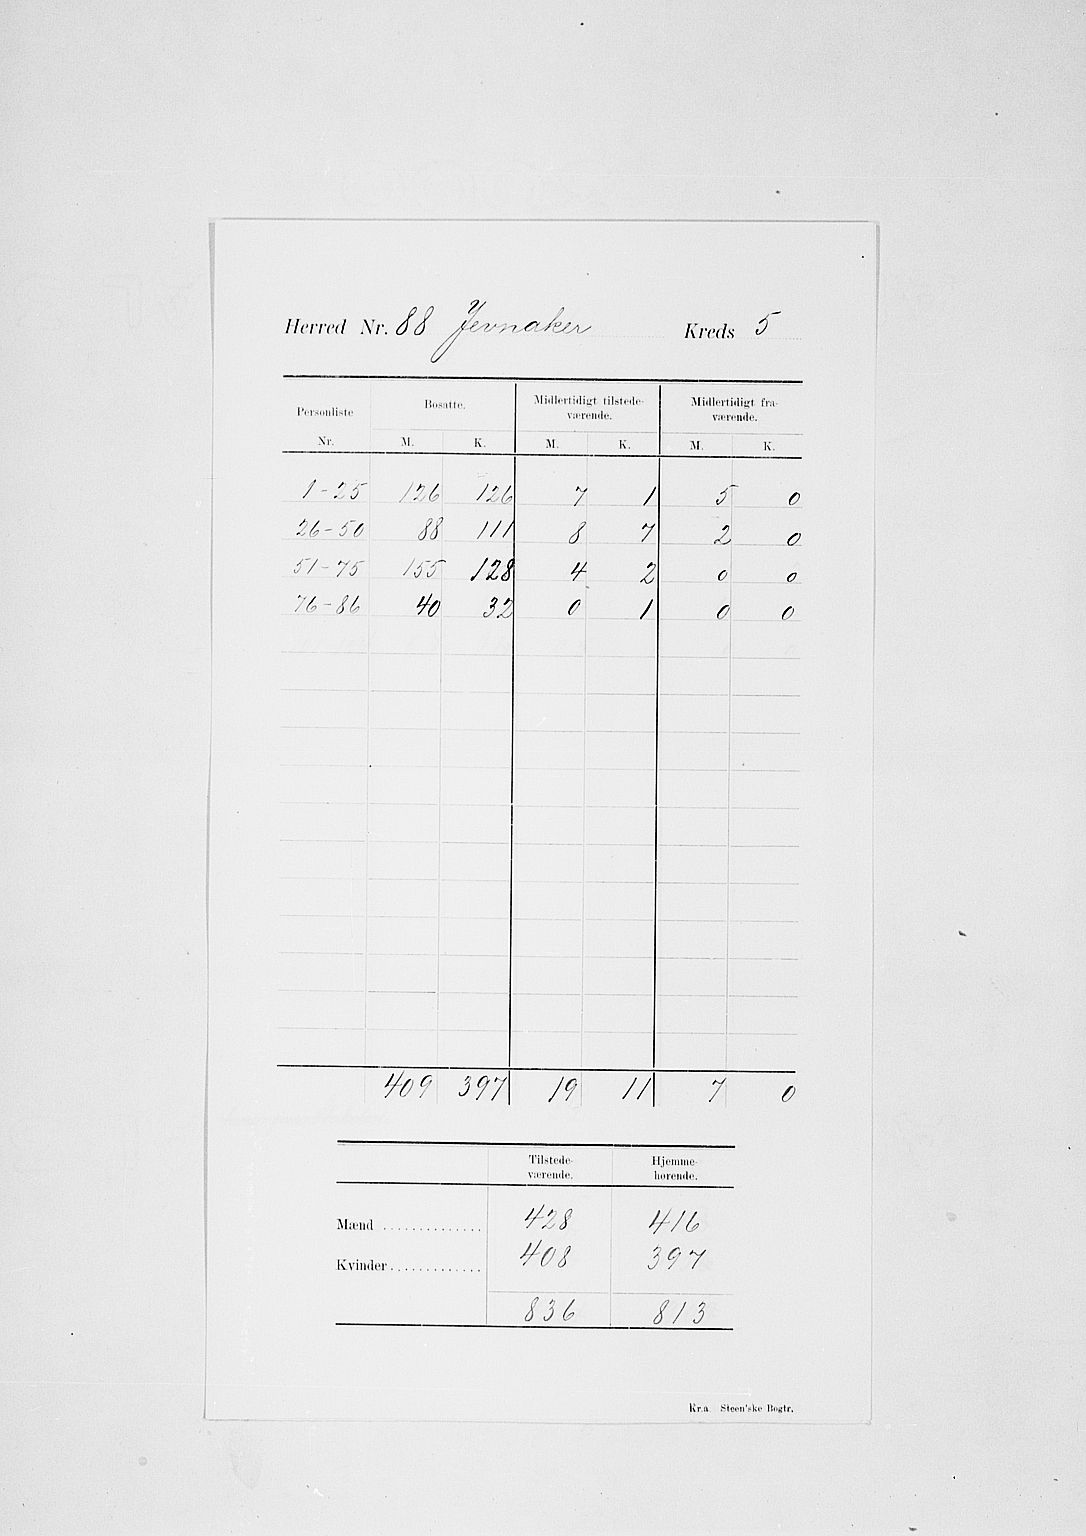 Herred Nr. 88 Jevnaker Kreds 5
Personliste Nr. Bosatte. Midlertidigt tilstede-værende. Midlertidigt fra-værende.
M. K. M. K. M. K.
1-25 126 126 7 1 5 0
26-50 88 111 8 7 2 0
51-75 155 128 4 2 0 0
76-86 40 32 0 1 0 0
409 397 19 11 7 0
Tilstede-værende. Hjemme-hørende.
Mænd .............. 428 416
Kvinder ............. 408 397
836 813
Kr.a. Steen'ske Bogtr.